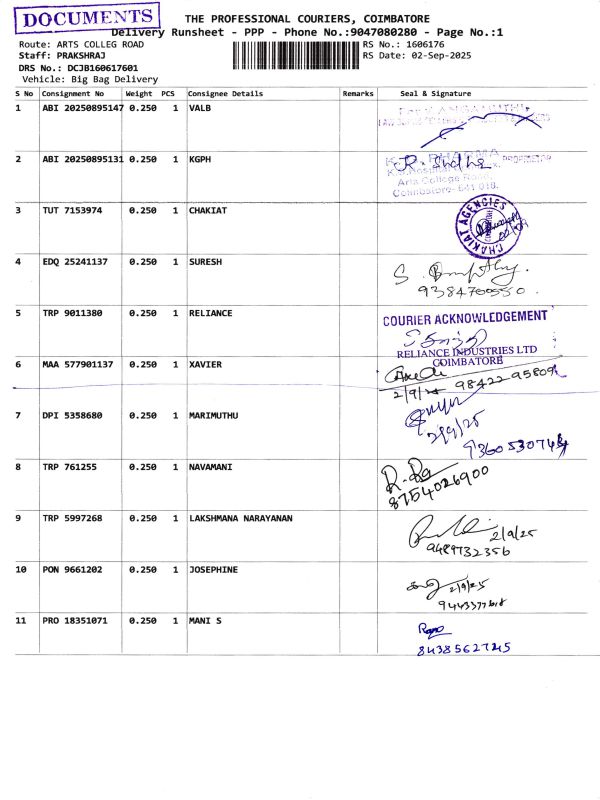 DOCUMENTS
THE PROFESSIONAL COURIERS, COIMBATORE
Delivery Runsheet - PPP - Phone No.:9047080280 - Page No.:1
Route: ARTS COLLEG ROAD RS No.: 1606176
Staff: PRAKSHRAJ RS Date: 02-Sep-2025
DRS No.: DCJB160617601
Vehicle: Big Bag Delivery
S No Consignment No Weight PCS Consignee Details Remarks Seal & Signature
1 ABI 20250895147 0.250 1 VALB
2 ABI 20250895131 0.250 1 KGPH
PROPRIETOR
Arts College Road,
Coimbatore- 641 018.
3 TUT 7153974 0.250 1 CHAKIAT
CHAKIAT AGENCIES
4 EDQ 25241137 0.250 1 SURESH
9384700550
5 TRP 9011380 0.250 1 RELIANCE
COURIER ACKNOWLEDGEMENT
RELIANCE INDUSTRIES LTD
COIMBATORE
6 MAA 577901137 0.250 1 XAVIER
98422 95809
7 DPI 5358680 0.250 1 MARIMUTHU
2/9/25
8 TRP 761255 0.250 1 NAVAMANI
8754026900
9 TRP 5997268 0.250 1 LAKSHMANA NARAYANAN
2/9/25
9489732356
10 PON 9661202 0.250 1 JOSEPHINE
2/9/25
11 PRO 18351071 0.250 1 MANI S